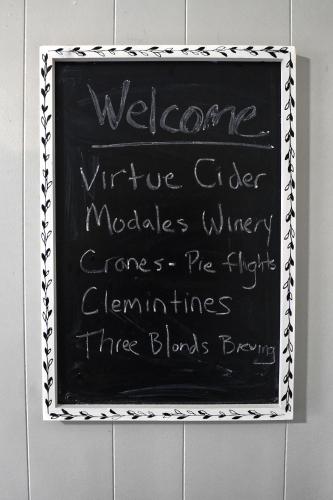 Welcome
Virtue Cider
Modales Winery
Cranes - Pie flights
Clemintines
Three Blonds Brewing